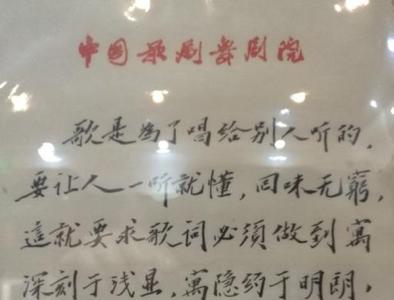 中国歌剧舞剧院
歌是為了唱给别人听的,
要让人一听就懂,回味无窮,
這就要求歌词必须做到寓
深刻于浅显,寓隐约于明朗,